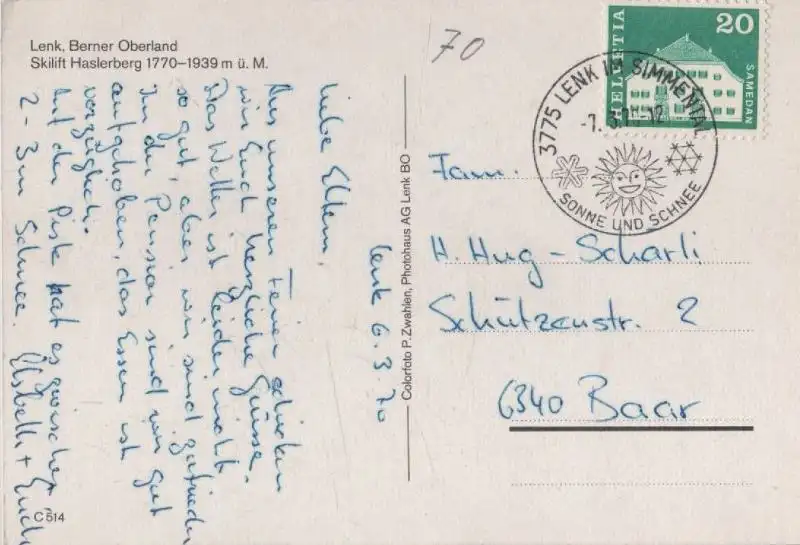 Lenk, Berner Oberland
Skilift Haslerberg 1770–1939 m ü. M.
70
HELVETIA
20
SAMEDAN
3775 LENK IM SIMMENTAL
-7. 3.70-12
SONNE UND SCHNEE
Lenk 6.3.70
Liebe Eltern,
Aus unseren Ferien schicken
wir Euch herzliche Grüsse.
Das Wetter ist leider nicht
so gut, aber wir sind zufrieden
In der Pension sind wir gut
aufgehoben, das Essen ist
vorzüglich.
Auf der Piste hat es zwischen
2-3 m Schnee. Elsbeth +
Colorfoto P. Zwahlen, Photohaus AG Lenk BO
Fam.
H. Hug-Schärli
Schützenstr. 2
6340 Baar
C 514